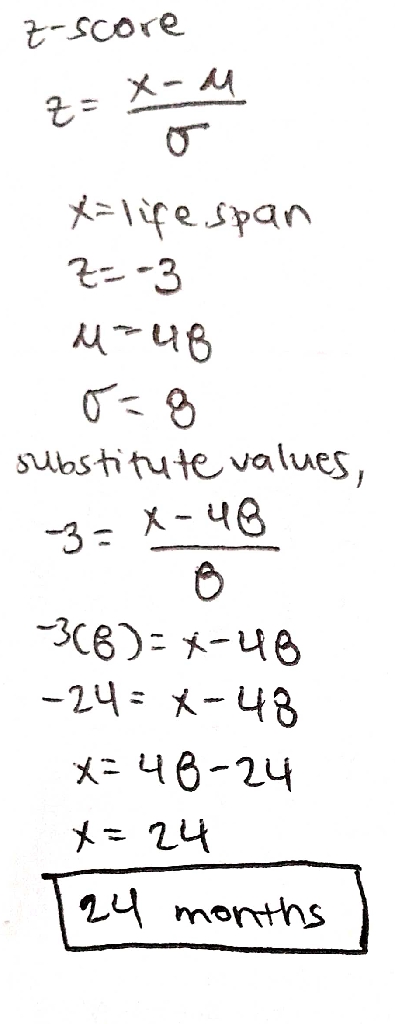 z-score
z = x - μ
σ
x = life span
z = -3
μ = 48
σ = 8
substitute values,
-3 = x - 48
8
-3(8) = x - 48
-24 = x - 48
x = 48 - 24
x = 24
24 months